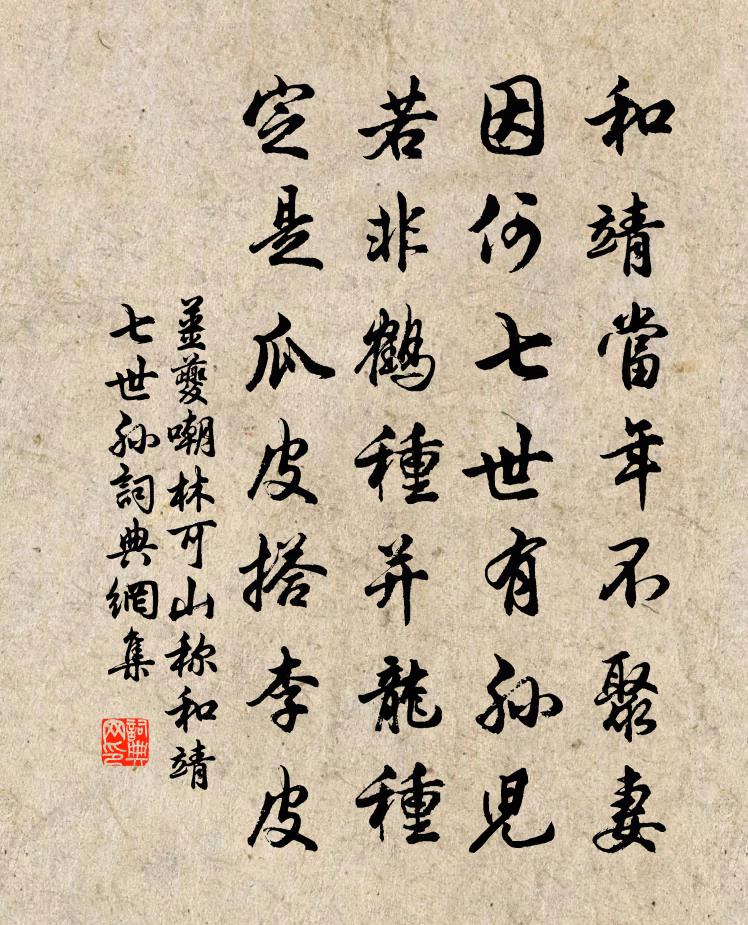 和靖當年不聚妻
因何七世有孫児
若非鶴種并龍種
定是瓜皮搭李皮
姜夔嘲林可山称和靖
七世孫詞典網集
詞典網印